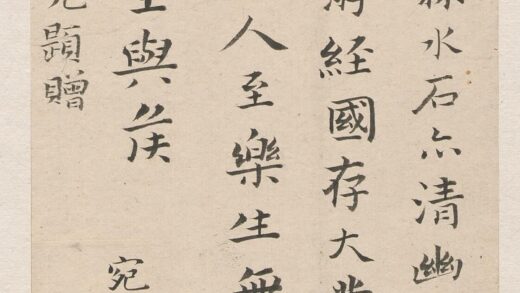 水石亦清幽
經國存大
人至樂生無
與侯
宛
贈